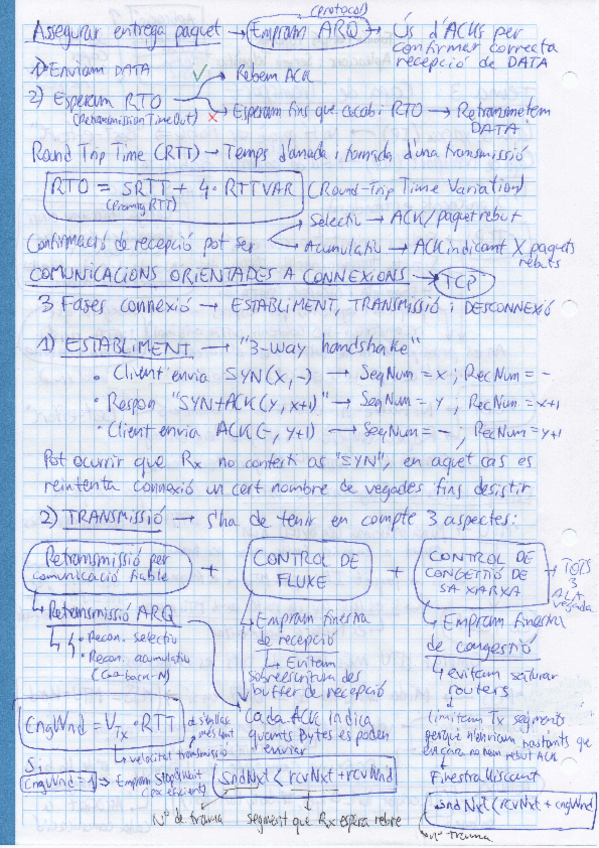 (protocol)
Assegurar entrega paquet → Empram ARQ → Ús d'ACKs per
confirmar correcta
recepció de DATA
1) Enviam DATA
✓ Rebem ACK
2) Esperam RTO
(Retransmission TimeOut)
x Esperam fins que acabi RTO → Retransmetem
DATA
Round Trip Time (RTT) → Temps d'anada i tornada d'una transmissió
RTO = SRTT + 4·RTTVAR (Round-Trip Time Variation)
(Promig RTT)
Selectiu → ACK/paquet rebut
Confirmació de recepció pot ser
Acumulatiu → ACK indicant X paquets
rebuts
COMUNICACIONS ORIENTADES A CONNEXIONS → TCP
3 Fases connexió → ESTABLIMENT, TRANSMISSIÓ i DESCONNEXIÓ
1) ESTABLIMENT → "3-way handshake"
• Client envia SYN(x,-) → SeqNum = x ; RecNum = -
• Respon "SYN+ACK(y, x+1)" → SeqNum = y ; RecNum = x+1
• Client envia ACK(-, y+1) → SeqNum = - ; RecNum = y+1
Pot ocurrir que Rx no contesti as "SYN", en aquet cas es
reintenta connexió un cert nombre de vegades fins desistir
2) TRANSMISSIÓ → S'ha de tenir en compte 3 aspectes:
Retransmissió per
comunicació fiable
+
CONTROL DE
FLUXE
+
CONTROL DE
CONGESTIÓ DE
SA XARXA
→ TOTS
3
A LA
vegada
Retransmissió ARQ
• Recon. selectiu
• Recon. acumulatiu
(Go-back-N)
Empram finestra
de recepció
Evitam
sobreescritura des
buffer de recepció
Cada ACK indica
quants Bytes es poden
enviar
SndNxt < rcvNxt + rcvWnd
Nº de trama
segment que Rx espera rebre
Empram finestra
de congestió
evitam saturar
routers
limitam Tx segments
perquè n'enviam bastants que
encara no hem rebut ACK
Finestra lliscant
SndNxt < (rcvNxt + cngWnd
nº trama
CngWnd = VTx · RTT
velocitat transmissió
Si
CngWnd = 1 → Empram Stop&Wait